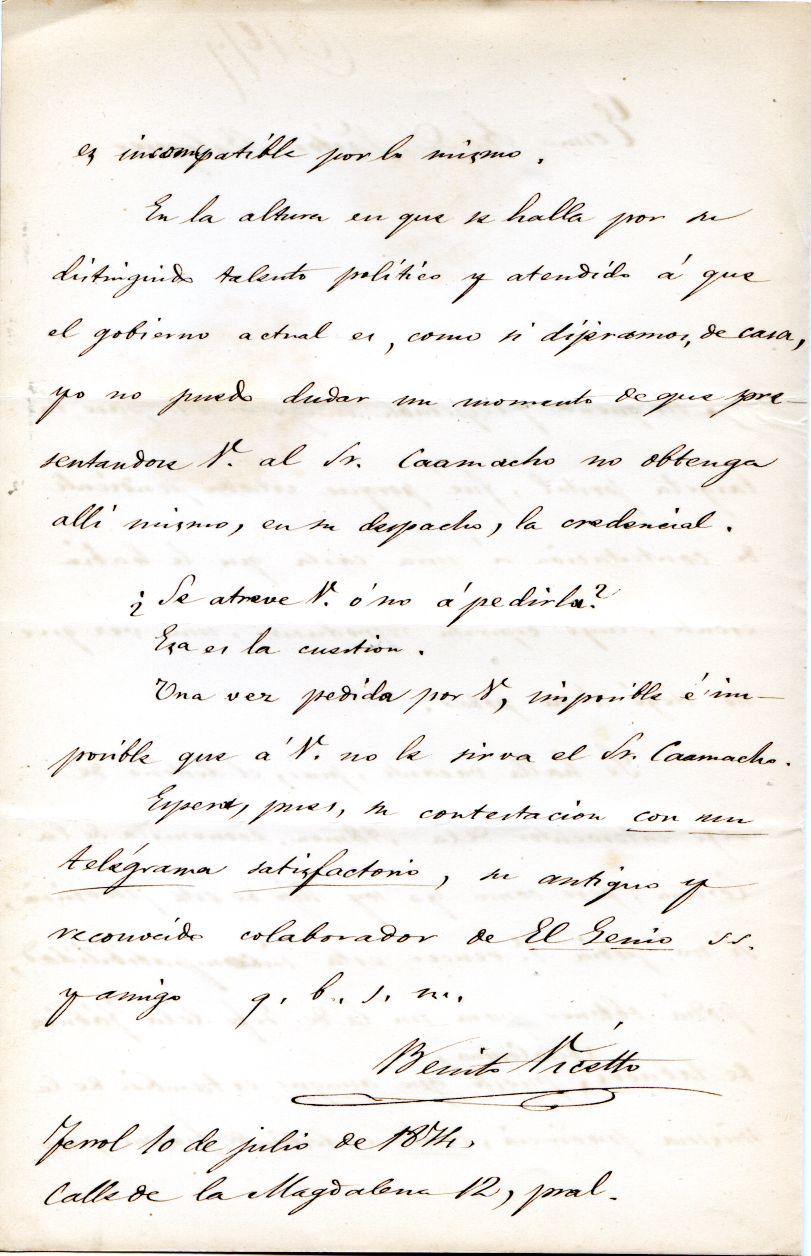 es incompatible por lo mismo.
En la altura en que se halla por su
distinguido talento político y atendido á que
el gobierno actual es, como si dijeramos, de casa,
yo no puedo dudar un momento de que pre-
sentandose V. al Sr. Caamacho no obtenga
alli mismo, en su despacho, la credencial.
¿Se atreve V. ó no á pedirla?
Esa es la cuestion.
Una vez pedida por V, imposible é im-
posible que á V. no le sirva el Sr. Caamacho.
Espera, pues, su contestacion con un
telégrama satisfactorio, su antiguo y
reconocido colaborador de El Genio s.s.
y amigo q. b. s. m.
Benito Vicetto
Ferrol 10 de julio de 1874.
Calle de la Magdalena 12, pral.